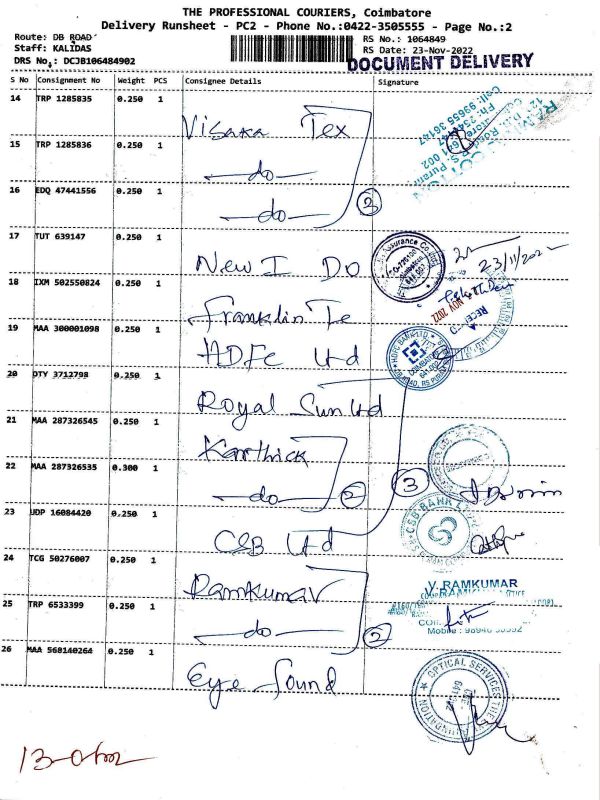 THE PROFESSIONAL COURIERS, Coimbatore
Delivery Runsheet - PC2 - Phone No.:0422-3505555 - Page No.:2
Route: DB ROAD
RS No.: 1064849
Staff: KALIDAS
RS Date: 23-Nov-2022
DRS No.: DCJB106484902
DOCUMENT DELIVERY
S No Consignment No Weight PCS Consignee Details Signature
14 TRP 1285835 0.250 1 Visaka Tex
15 TRP 1285836 0.250 1 -do-
16 EDQ 47441556 0.250 1 -do- 3
17 TUT 639147 0.250 1 New I Do
23/11/2022
18 IXM 502550824 0.250 1 Franklin Te
19 MAA 300001098 0.250 1 HDFC Ltd
20 DTY 3712798 0.250 1 Royal Sun Ltd
21 MAA 287326545 0.250 1 Karthick
22 MAA 287326535 0.300 1 -do- 2 3
23 UDP 16084420 0.250 1 CSB Ltd
CSB BANK
24 TCG 50276007 0.250 1 Ramkumar
V. RAMKUMAR
25 TRP 6533399 0.250 1 -do- 2
Mobile :
26 MAA 568140264 0.250 1 Eye found
OPTICAL SERVICES
FOUNDATION